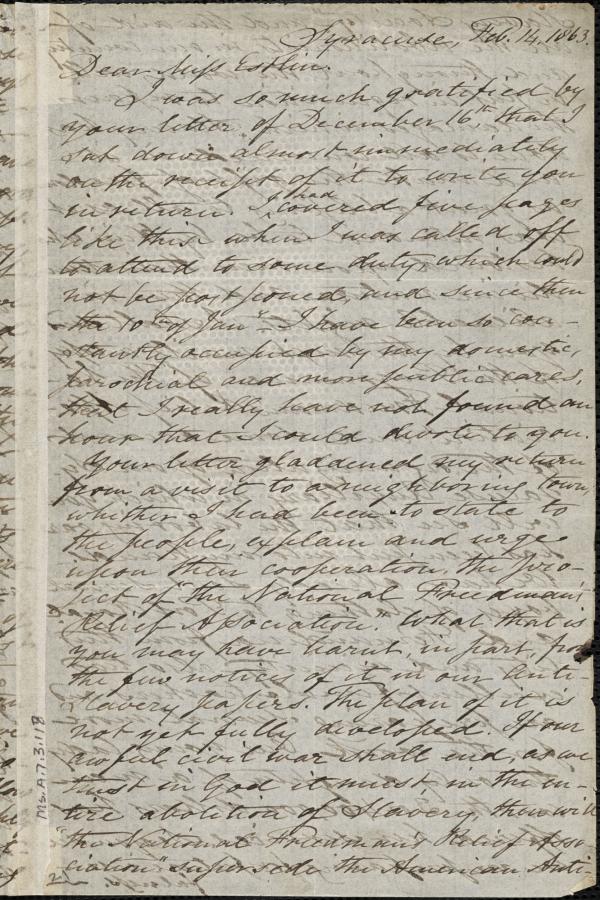 Syracuse, Feb. 14, 1863.
Dear Miss Estlin.
I was so much gratified by
your letter of December 16th that I
sat down almost immediately
on the receipt of it to write you
in return. I had covered five pages
like this when I was called off
to attend to some duty, which could
not be postponed, and since then
the 10th of Jany I have been so con-
stantly occupied by my domestic,
parochial and more public cares,
that I really have not found an
hour that I could devote to you.
Your letter gladdened my return
from a visit to a neighboring town,
whither I had been to state to
the people, explain and urge
upon their cooperation, the pro-
ject of "the National Freedman's
Relief Association." What that is
you may have learnt, in part, from
the few notices of it in our Anti-
Slavery papers. The plan of it is
not yet fully developed. If our
awful civil war shall end, as we
trust in God it must, in the en-
tire abolition of Slavery, then will
"the National Freedman's Relief Asso-
ciation" supersede the American Anti-
Ms.A.7.3.11B
2